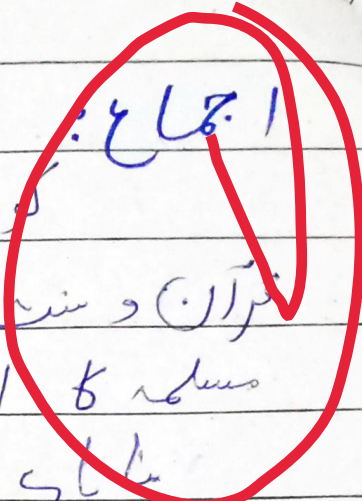 اجماع:
کو
قرآن و سنت
مسلمہ کا ا